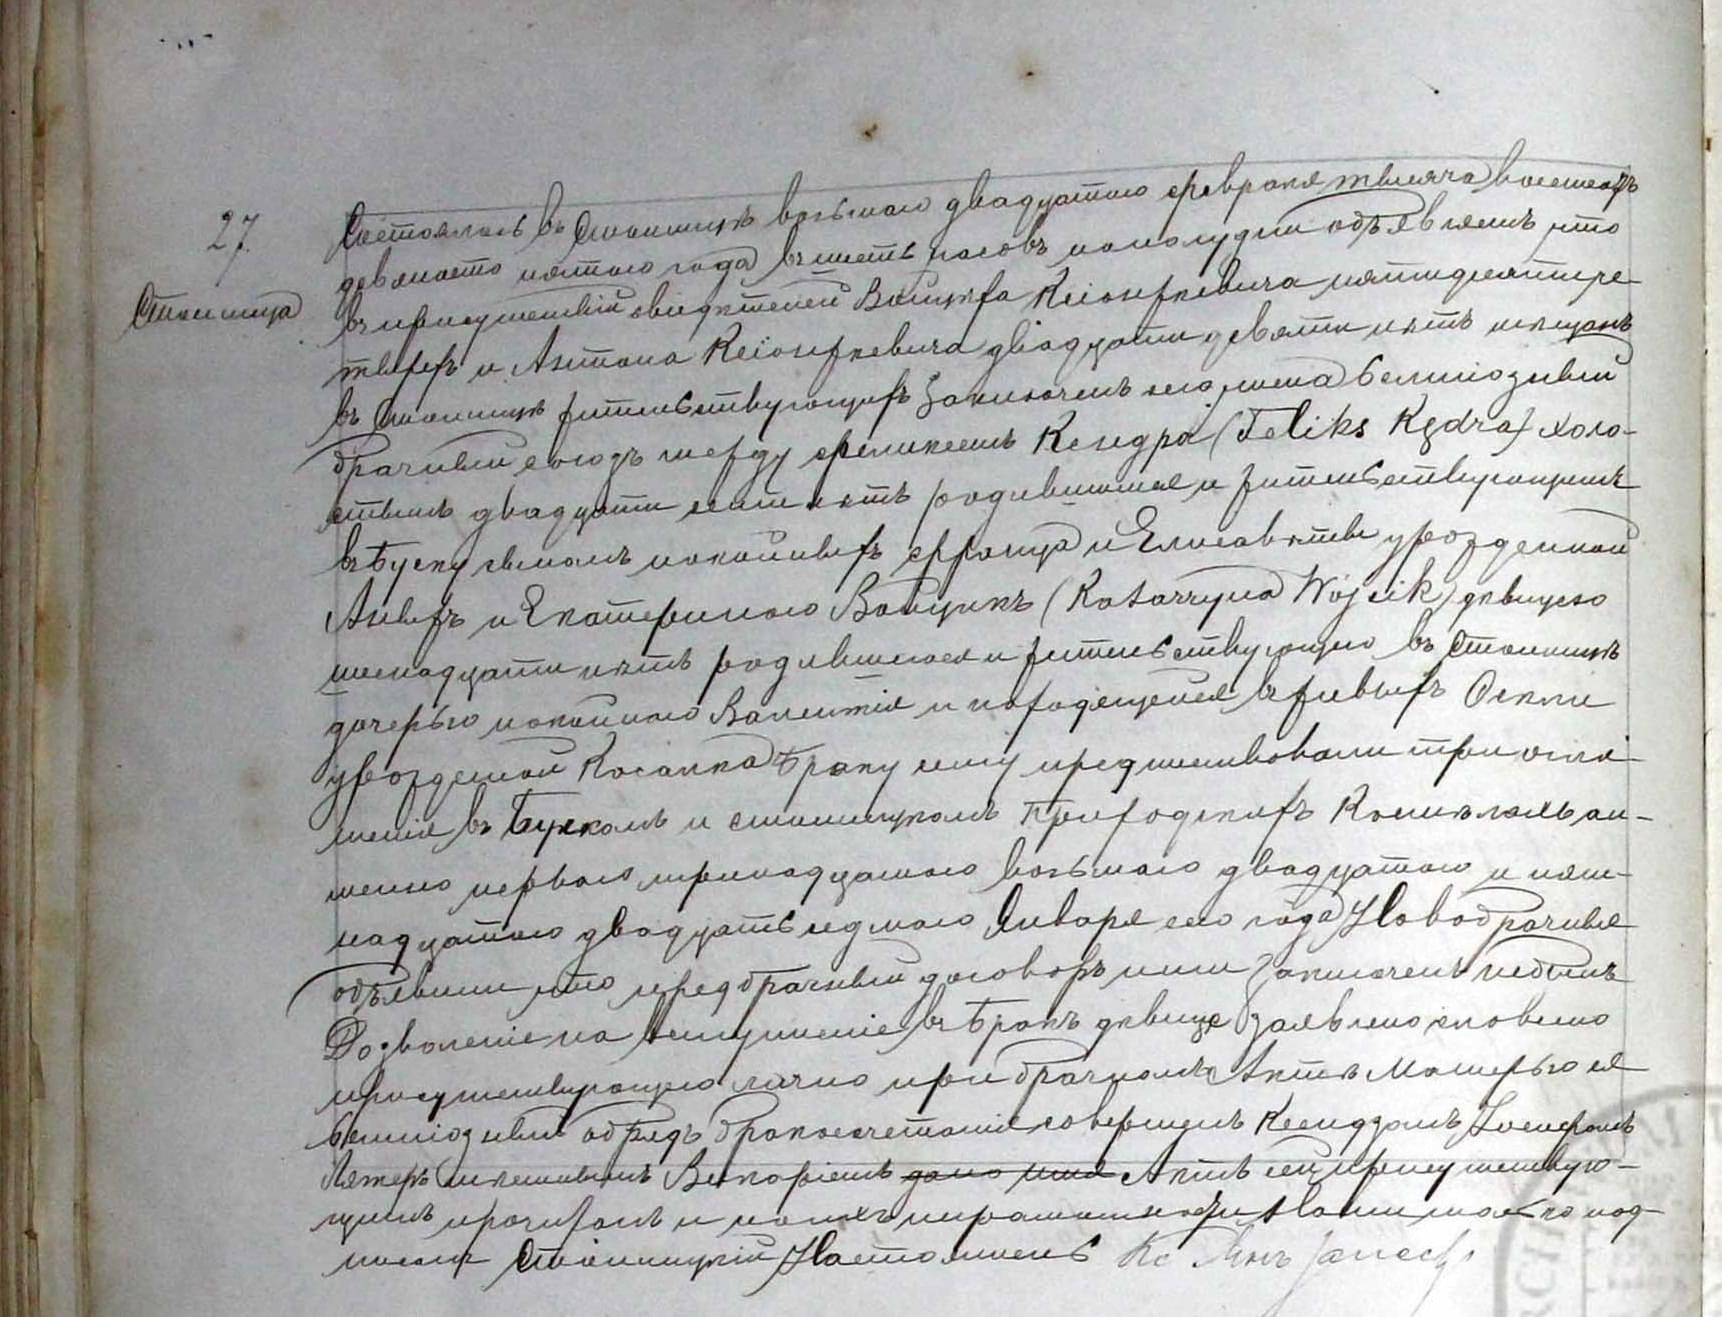 27.
Стопница
Состоялось въ Стопницѣ восьмаго двадцатого февраля тысяча восемсотъ
девяносто пятого года въ шесть часовъ пополудни объявляемъ что
въ присутствіи свидѣтелей Войцѣха Ксіонжкевича пятидесяти че-
тырехъ и Антона Ксіонжкевича двадцати девяти лѣтъ мѣщанъ
въ Стопницѣ жительствующихъ заключенъ сего числа религіозный
брачный союзъ между Феликсомъ Кендра (Feliks Kędra) холо-
стымъ двадцати семи лѣтъ родившимся и жительствующимъ
въ Буску сыномъ покойныхъ Франца и Елисаветы урожденной
и Екатериною Войцикъ (Katarzyna Wójcik) дѣвицею
шестнадцати лѣтъ родившеюся и жительствующею въ Стопницѣ
дочерью покойнаго Валентія и находящейся въ живыхъ
урожденной Браку сему предшествовали три огла-
шенія въ Бускомъ и Стопницкомъ Приходскихъ Костелахъ а и-
менно перваго тринадцатаго восьмаго двадцатаго и пят-
надцатаго двадцать седмаго Января сего года Новобрачные
объявили что предбрачный договоръ ими заключенъ небылъ
Дозволеніе на вступленіе въ бракъ дѣвицѣ заявлено словесно
присутствующею лично при брачномъ Актѣ Матерью ея
религіозный обрядъ бракосочетанія совершенъ Ксендзомъ Іосифомъ
мѣстнымъ Викаріемъ дано имя Актъ сей присутствую-
щимъ прочитанъ и по ихъ неграмотности Нами только под-
писанъ Стопницкій Настоятель Кс